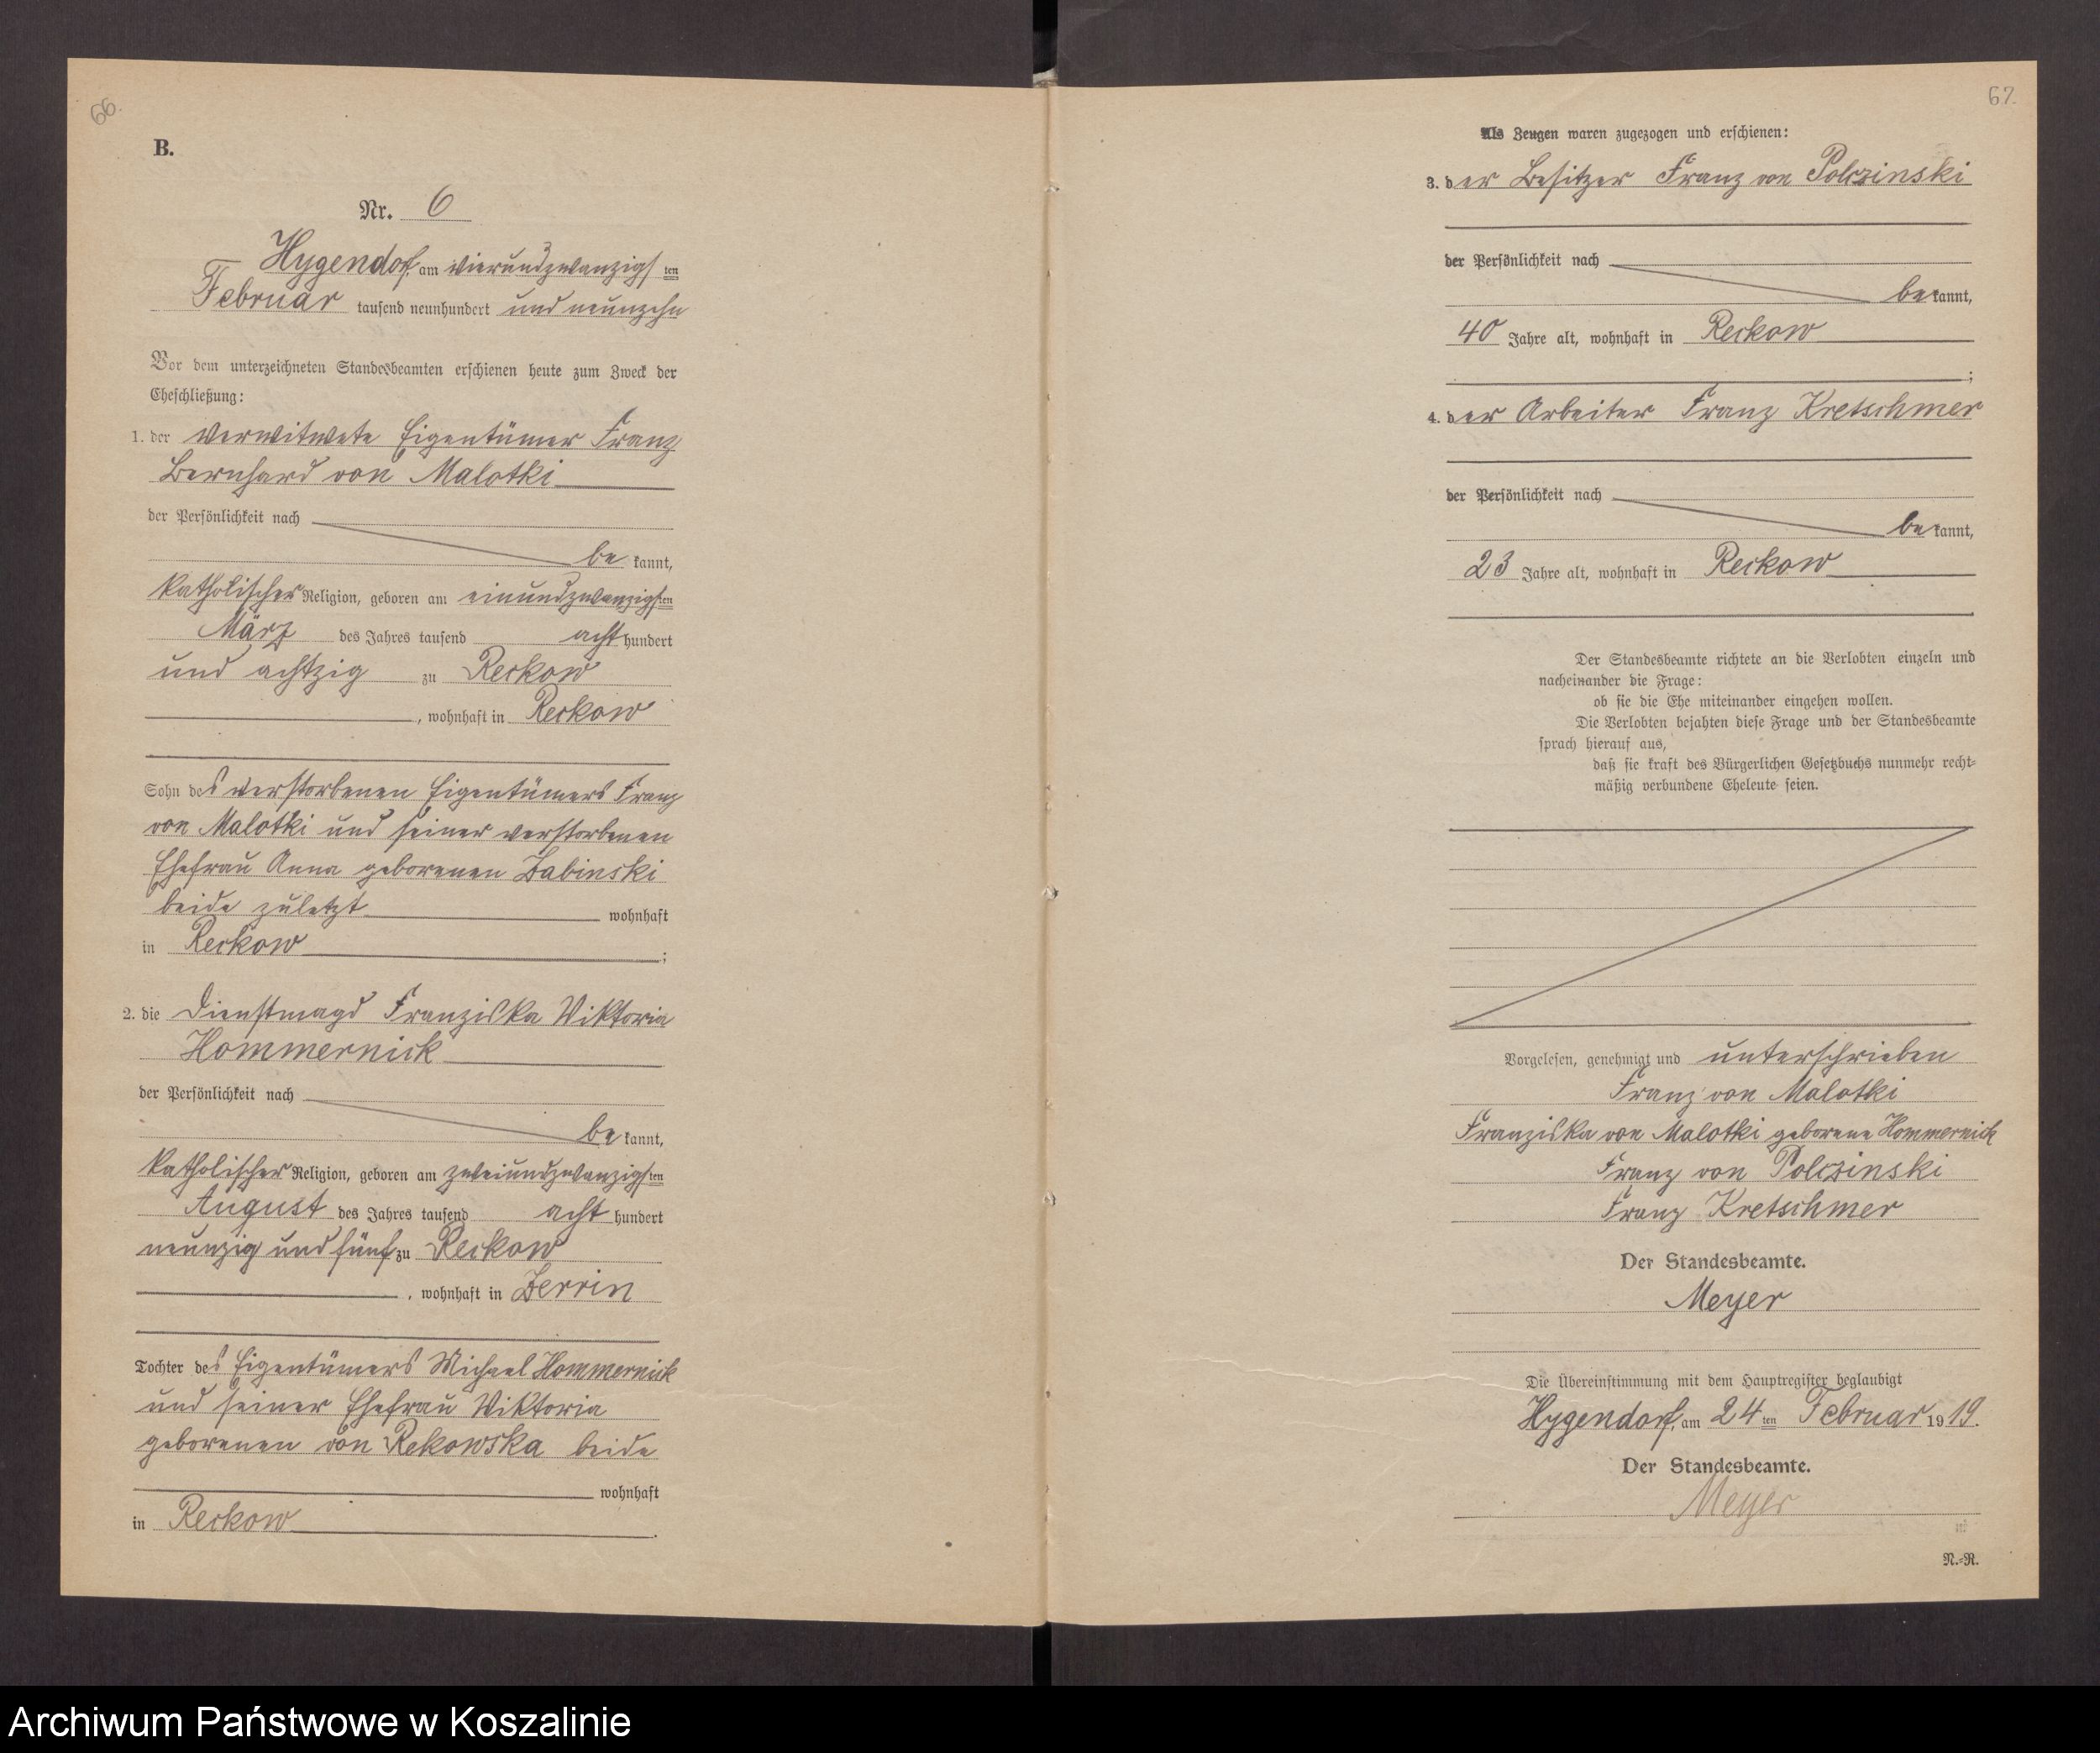 66.
B.
Nr. 6
Hygendorf, am vierundzwanzigsten
Februar tausend neunhundert und neunzehn
Vor dem unterzeichneten Standesbeamten erschienen heute zum Zweck der
Eheschließung:
1. der verwitwete Eigentümer Franz
Bernhard von Malotki
der Persönlichkeit nach
be kannt,
katholischer Religion, geboren am einundzwanzigsten
März des Jahres tausend acht hundert
und achtzig zu Reckow
, wohnhaft in Reckow
Sohn des verstorbenen Eigentümers Franz
von Malotki und seiner verstorbenen
Ehefrau Anna geborenen Zabinski
beide zuletzt wohnhaft
in Reckow ;
2. die Dienstmagd Franziska Viktoria
Hommernick
der Persönlichkeit nach
be kannt,
katholischer Religion, geboren am zweiundzwanzigsten
August des Jahres tausend acht hundert
neunzig und fünf zu Reckow
, wohnhaft in Zerrin
Tochter des Eigentümers Michael Hommernick
und seiner Ehefrau Viktoria
geborenen von Rekowska beide
wohnhaft
in Reckow .
67.
Als Zeugen waren zugezogen und erschienen:
3. der Besitzer Franz von Polczinski
der Persönlichkeit nach
be kannt,
40 Jahre alt, wohnhaft in Reckow
;
4. der Arbeiter Franz Kretschmer
der Persönlichkeit nach
be kannt,
23 Jahre alt, wohnhaft in Reckow
Der Standesbeamte richtete an die Verlobten einzeln und
nacheinander die Frage:
ob sie die Ehe miteinander eingehen wollen.
Die Verlobten bejahten diese Frage und der Standesbeamte
sprach hierauf aus,
daß sie kraft des Bürgerlichen Gesetzbuchs nunmehr recht-
mäßig verbundene Eheleute seien.
Vorgelesen, genehmigt und unterschrieben
Franz von Malotki
Franziska von Malotki geborene Hommernick
Franz von Polczinski
Franz Kretschmer
Der Standesbeamte.
Meyer
Die Übereinstimmung mit dem Hauptregister beglaubigt
Hygendorf, am 24ten Februar 1919.
Der Standesbeamte.
Meyer
N.-R.
Archiwum Państwowe w Koszalinie